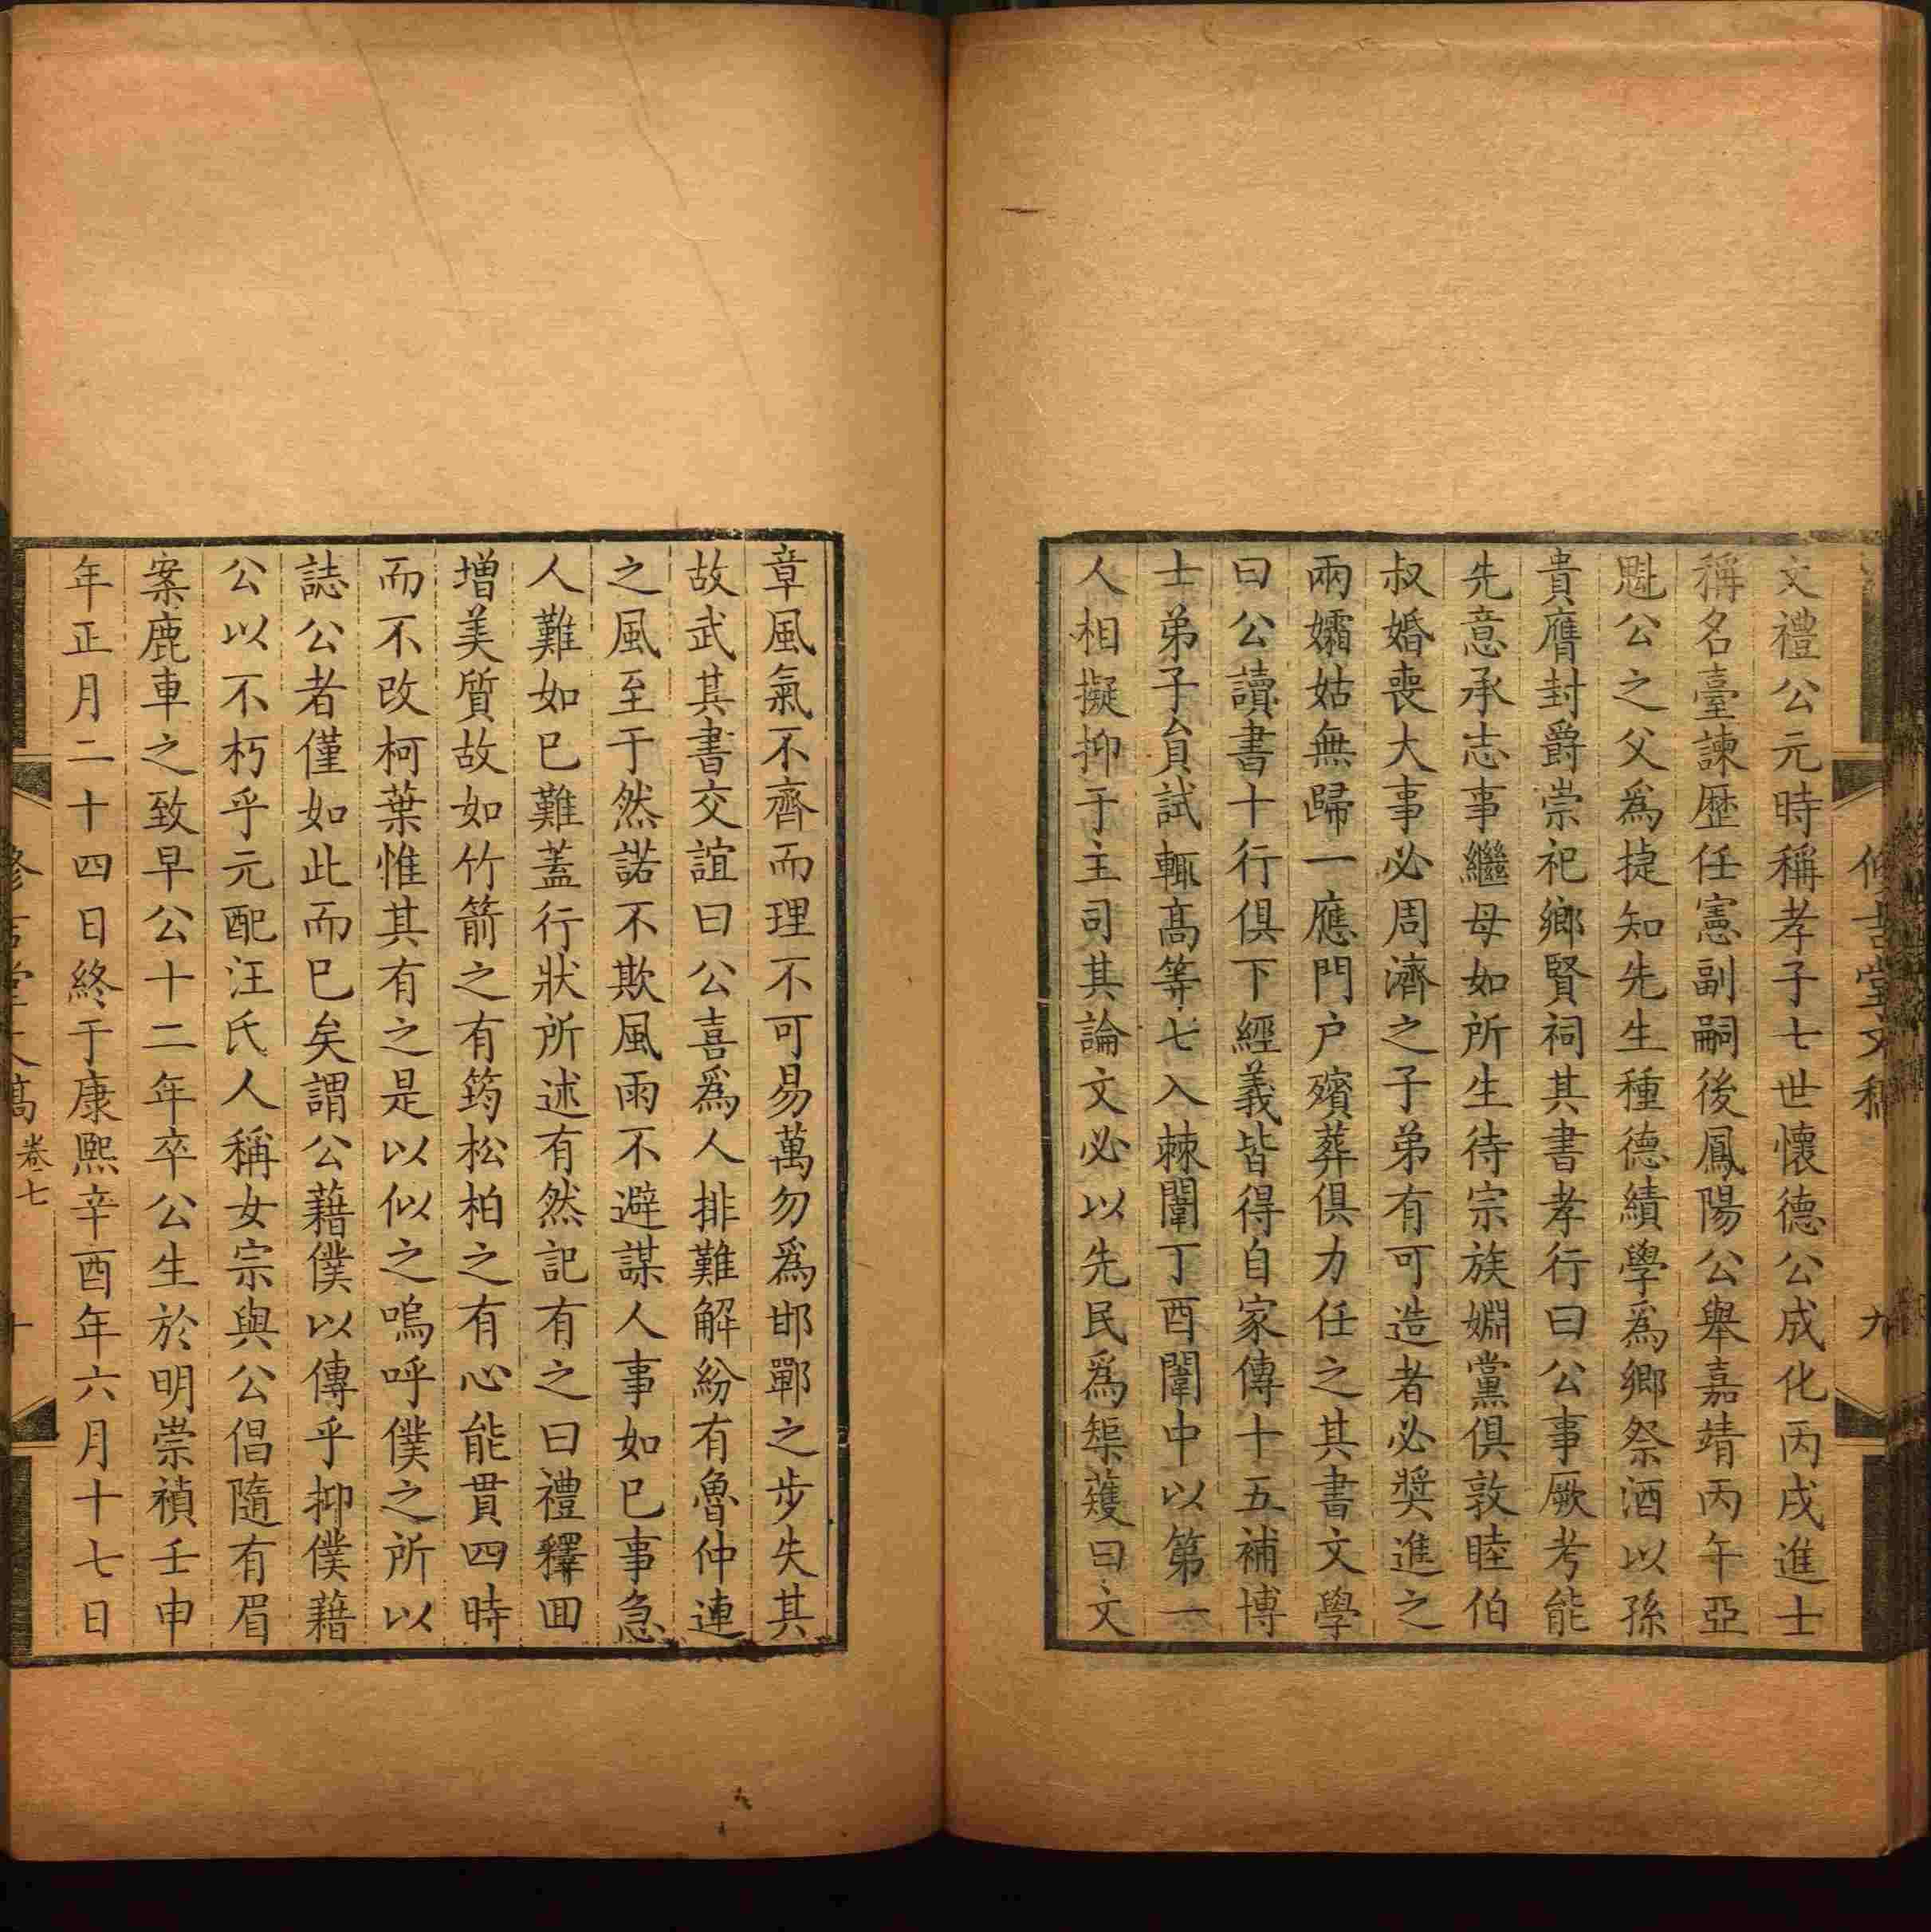 文禮公元時稱孝子七世懷德公成化丙戌進士
稱名臺諫歷任憲副嗣後鳳陽公舉嘉靖丙午亞
魁公之父爲捷知先生種德績學爲鄉祭酒以孫
貴膺封爵崇祀鄉賢祠其書孝行曰公事厥考能
先意承志事繼母如所生待宗族婣黨俱敦睦伯
叔婚喪大事必周濟之子弟有可造者必奬進之
兩孀姑無歸一應門户殯葬俱力任之其書文學
曰公讀書十行俱下經義皆得自家傳十五補博
士弟子員試輒高等七入棘闈丁酉闈中以第一
人相擬抑于主司其論文必以先民爲榘蒦曰文
九
章風氣不齊而理不可易萬勿爲邯鄲之步失其
故武其書交誼曰公喜爲人排難解紛有魯仲連
之風至于然諾不欺風雨不避謀人事如已事急
人難如已難蓋行狀所述有然記有之曰禮釋回
增美質故如竹箭之有筠松柏之有心能貫四時
而不改柯葉惟其有之是以似之嗚呼僕之所以
誌公者僅如此而巳矣謂公藉僕以傳乎抑僕藉
公以不朽乎元配汪氏人稱女宗與公倡隨有眉
案鹿車之致早公十二年卒公生於明崇禎壬申
年正月二十四日終于康熙辛酉年六月十七日
卷七